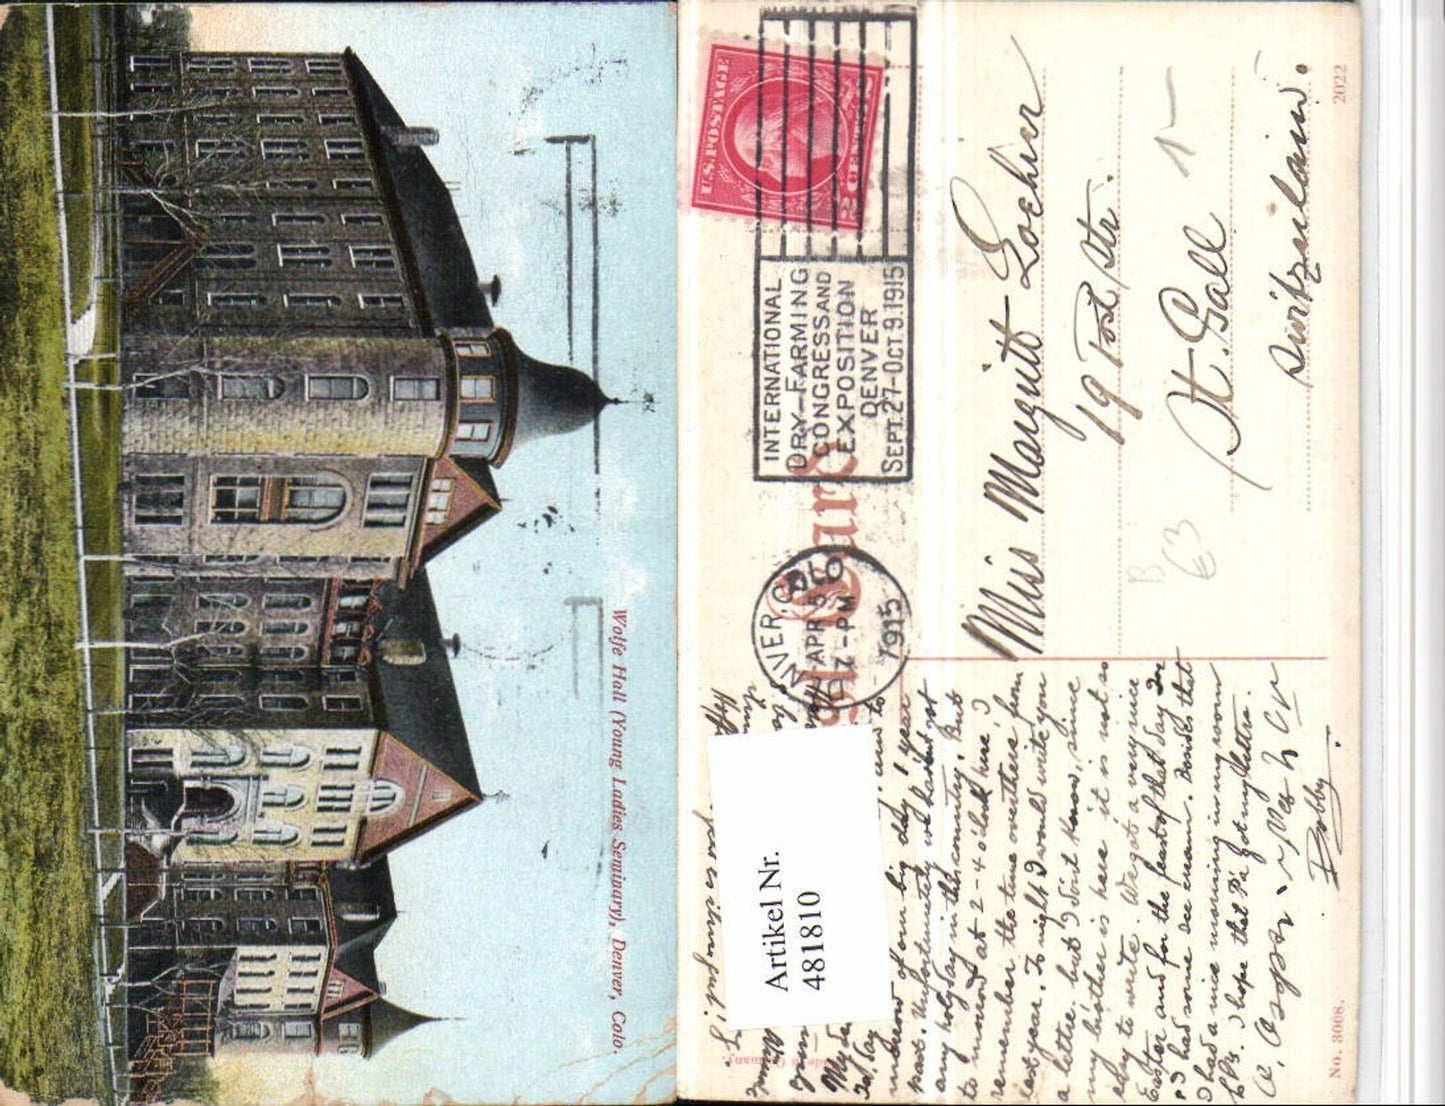 Wolfe Hall (Young Ladies Seminary), Denver, Colo.
U.S. POSTAGE
2 CENTS 2
INTERNATIONAL
DRY-FARMING
CONGRESS AND
EXPOSITION
DENVER
SEPT. 27-OCT. 9. 1915
DENVER. COLO
APR 5
7-PM
1915
Card
Miss Margritt Loehrer
19 Post Str.
St. Gall
Switzerland.
2022
B
63
My
To day
of our big day 1 year
past. Unfortunately we haven't
any holyday in this country. But
to morrow at 2-4 o'clock here I
remember the time overthere from
last year. To night I would write you
a lettre but I don't know, since
my brother is here it is not so
easy to write. We got a very nice
Easter and for the feast of that day
I had some ice cream. Besides that
I had a nice morning in my room
I hope that P'a got my lettre.
Bobby
Artikel Nr.
481810
No. 3008.
Germany